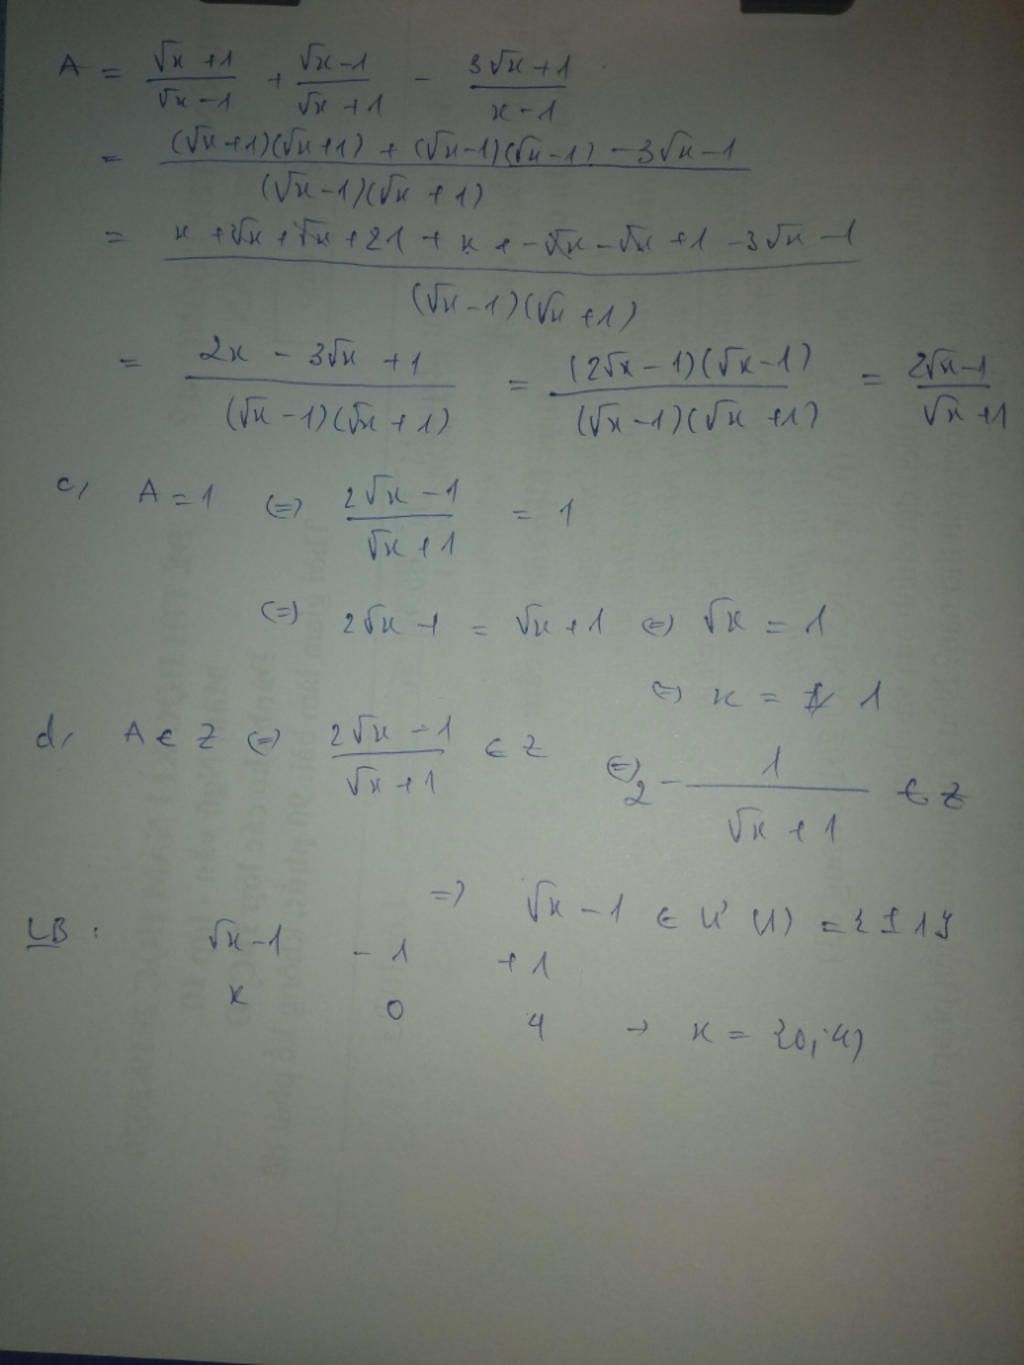 A = (√x + 1)/(√x − 1) + (√x − 1)/(√x + 1) − (3√x + 1)/(x − 1)
= ((√x + 1)(√x + 1) + (√x − 1)(√x − 1) − 3√x − 1)/((√x − 1)(√x + 1))
= (x + √x + √x + 1 + x + − √x − √x + 1 − 3√x − 1)/((√x − 1)(√x + 1))
= (2x − 3√x + 1)/((√x − 1)(√x + 1)) = ((2√x − 1)(√x − 1))/((√x − 1)(√x + 1)) = (2√x − 1)/(√x + 1)
c, A = 1 (=) (2√x − 1)/(√x + 1) = 1
(=) 2√x − 1 = √x + 1 (=) √x = 1
(=) x = 1
d, A ∈ Z (=) (2√x − 1)/(√x + 1) ∈ Z (=) 2 − 1/(√x + 1) ∈ Z
=> √x − 1 ∈ Ư (1) = {± 1}
LB : √x − 1 − 1 + 1
x 0 4 → x = {0; 4}